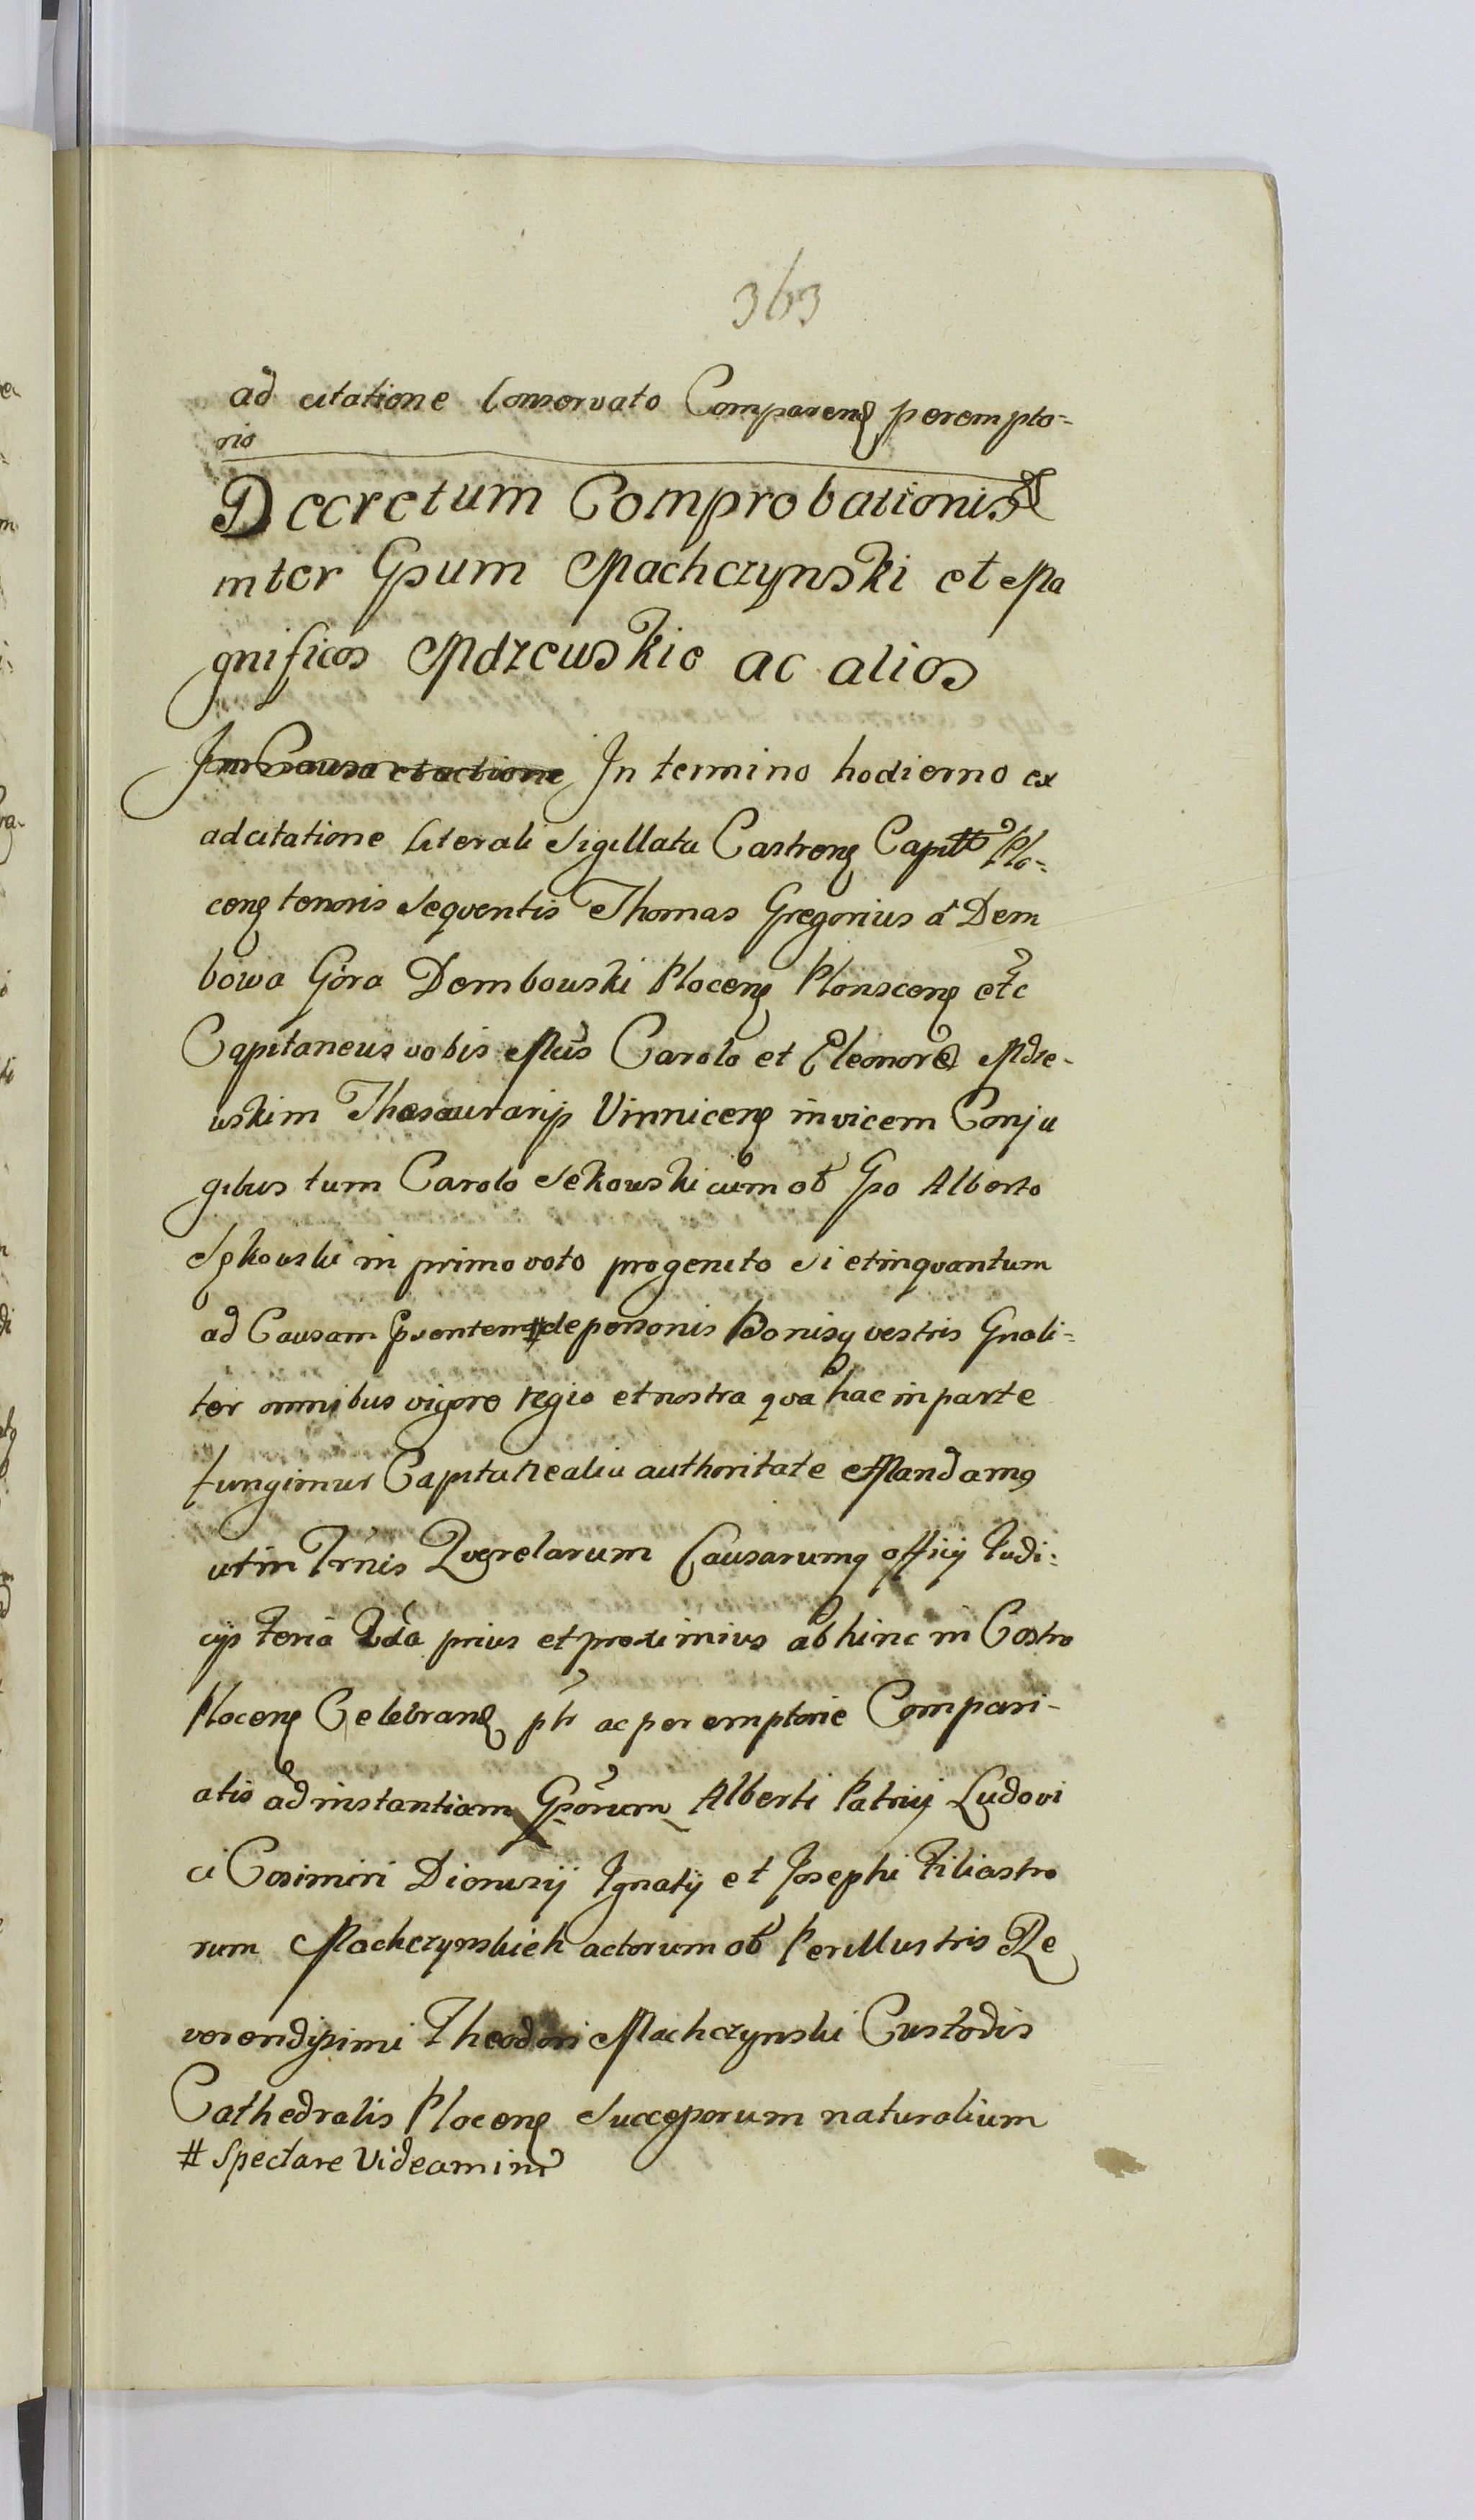 363
ad citatione Conservato Comparenẽ perempto-
rio
Decretum Comprobationis
inter Gsum Machczynski et Ma
gnificos Mdzewskie ac alios
In Causa et actione In termino hodierno ex
adcitatione literali Sigillata Castrenẽ Capitt Plo-
cenẽ tenoris Seqventis Thomas Gregorius á Dem
bowa Góra Dembowski Plocenẽ Plonscenẽ etc
Capitaneus vobis Mcis Carolo et Eleonore Mdze-
wskim Thesaurarijs Vinnicenẽ invicem Conju
gibus tum Carolo Sękowski cum ob Gso Alberto
Sękowski in primo voto progenito Si et inqvantum
ad Causam Psentem # de personis Bonisq vestris Gnali-
ter omnibus vigore regio et nostra qva hac in parte
fungimur Capitaneali authoritate Mandamq
ut in Trnis Qverelarum Causarumq officij Judi-
cijs feria 2da prius et proximius ab hinc in Castro
Plocenẽ Celebranẽ plr ac peremptorie Compari-
atis ad instantiam Gsorum Alberti Patrui Ludovi
ci Casimiri Dionisij Ignatij et Josephi Filiastro
rum Machczynskich actorum ob Perillustris Re
verendissimi Theodori Machczynski Custodis
Cathedralis Plocenẽ Successorum naturalium
# Spectare Videamini